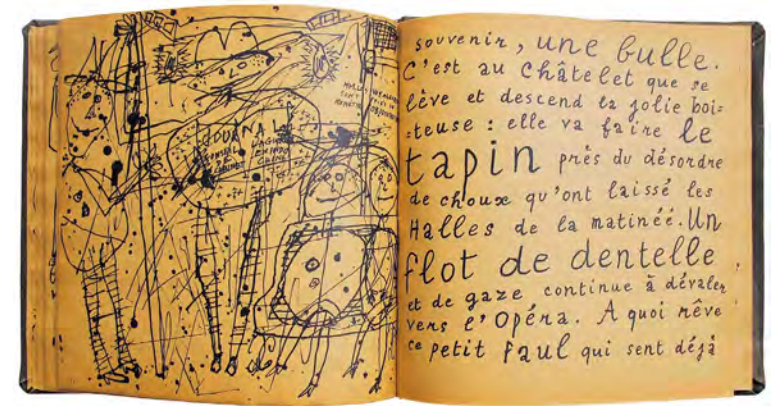 JOURNAL
souvenir, une bulle.
C'est au Châtelet que se
lève et descend la jolie boi=
=teuse : elle va faire le
tapin près du désordre
de choux qu'ont laissé les
Halles de la matinéé. Un
flot de dentelle
et de gaze continue à dévaler
vers l'Opéra. A quoi rêve
ce petit faul qui sent déjà